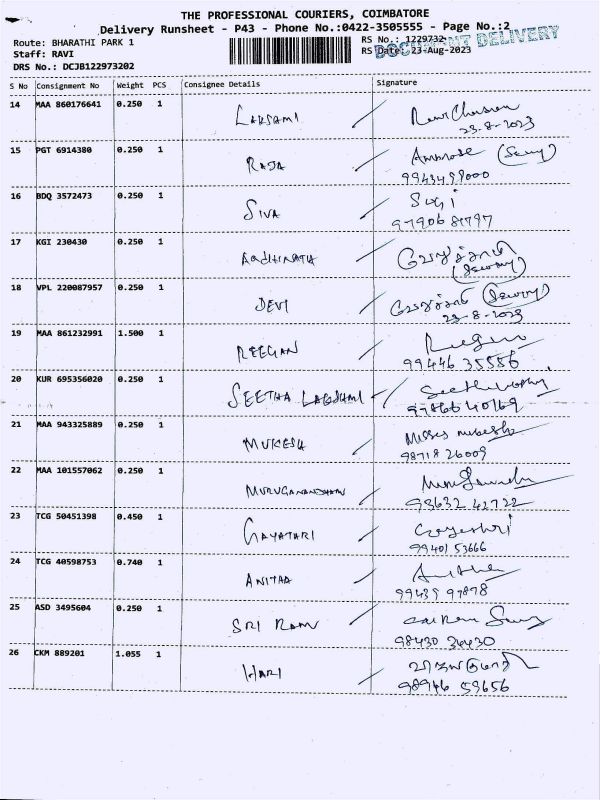 THE PROFESSIONAL COURIERS, COIMBATORE
Delivery Runsheet - P43 - Phone No.:0422-3505555 - Page No.:2
Route: BHARATHI PARK 1
RS No.: 1229732
DOCUMENT DELIVERY
Staff: RAVI
RS Date: 23-Aug-2023
DRS No.: DCJB122973202
S No Consignment No Weight PCS Consignee Details Signature
14 MAA 860176641 0.250 1 LAKSAMI
23-8-2023
15 PGT 6914380 0.250 1 RAJA
16 BDQ 3572473 0.250 1 SIVA
17 KGI 230430 0.250 1 AADHINATH
18 VPL 220087957 0.250 1 DEVI
23-8-2023
19 MAA 861232991 1.500 1 REEGAN
99446 35556
20 KUR 695356020 0.250 1 SEETHA LAKSHAMI
97866 40169
21 MAA 943325889 0.250 1 MUKESH
98718 26009
22 MAA 101557062 0.250 1 MURUGANANDHAM
93632 42722
23 TCG 50451398 0.450 1 GAYATARI
99401 53666
24 TCG 40598753 0.740 1 ANITAA
99439 97878
25 ASD 3495604 0.250 1 SRI RAM
98430 36430
26 CKM 889201 1.055 1 HARI
98946 59656